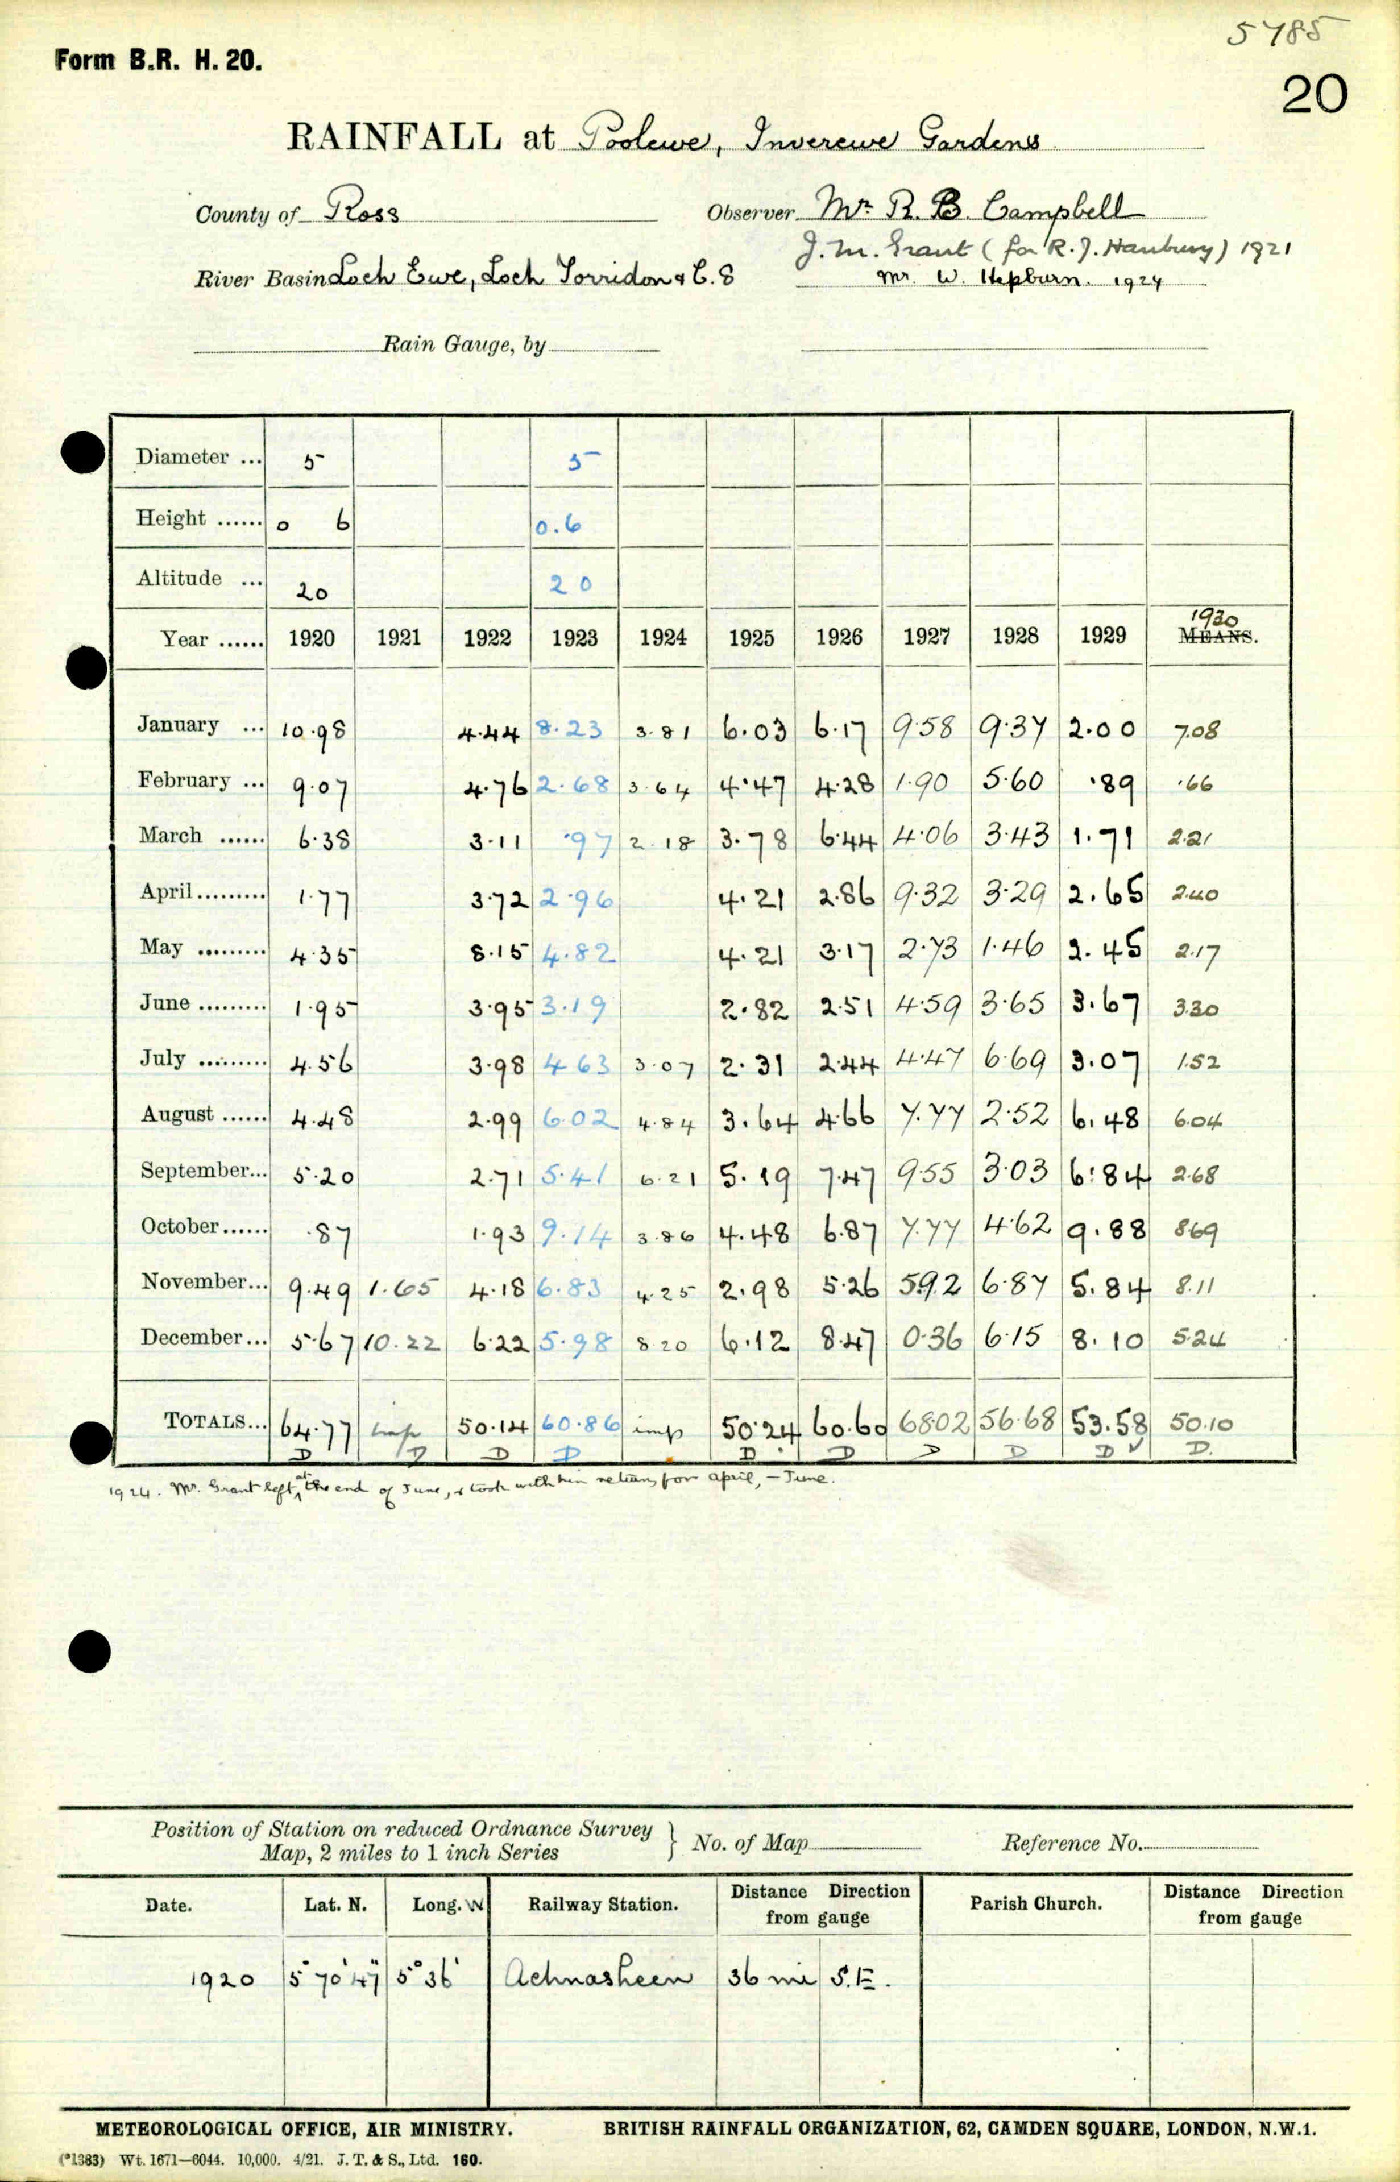 5785
Form B.R. H. 20.
20
RAINFALL at Poolewe, Inverewe Gardens
County of Ross Observer Mr R. B. Campbell
J. M. Grant (for R. J. Hanbury) 1921
River Basin Loch Ewe, Loch Torridon & C. 8 Mr. W. Hepburn. 1924
Rain Gauge, by
Diameter ... 5 5
Height ...... 0 6 0.6
Altitude ... 20 20
1930
Year ...... 1920 1921 1922 1923 1924 1925 1926 1927 1928 1929 MEANS.
January ... 10.98 4.44 8.23 3.81 6.03 6.17 9.58 9.37 2.00 7.08
February ... 9.07 4.76 2.68 3.64 4.47 4.28 1.90 5.60 .89 .66
March ...... 6.38 3.11 .97 2.18 3.78 6.44 4.06 3.43 1.71 2.21
April ......... 1.77 3.72 2.96 4.21 2.86 9.32 3.29 2.65 2.40
May ......... 4.35 8.15 4.82 4.21 3.17 2.73 1.46 2.45 2.17
June ......... 1.95 3.95 3.19 2.82 2.51 4.59 3.65 3.67 3.30
July ......... 4.56 3.98 4.63 3.07 2.31 2.44 4.47 6.69 3.07 1.52
August ...... 4.48 2.99 6.02 4.84 3.64 4.66 7.77 2.52 6.48 6.04
September... 5.20 2.71 5.41 6.21 5.19 7.47 9.55 3.03 6.84 2.68
October...... .87 1.93 9.14 3.86 4.48 6.87 7.77 4.62 9.88 8.69
November... 9.49 1.65 4.18 6.83 4.25 2.98 5.26 5.92 6.87 5.84 8.11
December... 5.67 10.22 6.22 5.98 8.20 6.12 8.47 0.36 6.15 8.10 5.24
TOTALS... 64.77 imp 50.14 60.86 imp 50.24 60.60 68.02 56.68 53.58 50.10
D D D D D D D D D ✓ D.
1924. Mr. Grant left at the end of June, & took with him returns for April, - June.
Position of Station on reduced Ordnance Survey
Map, 2 miles to 1 inch Series } No. of Map Reference No.
Date. Lat. N. Long. W Railway Station. Distance Direction from gauge Parish Church. Distance Direction from gauge
1920 5°70'47" 5°36' Achnasheen 36 mi S.E.
METEOROLOGICAL OFFICE, AIR MINISTRY. BRITISH RAINFALL ORGANIZATION, 62, CAMDEN SQUARE, LONDON, N.W.1.
(*1383) Wt. 1671—6044. 10,000. 4/21. J. T. & S., Ltd. 160.